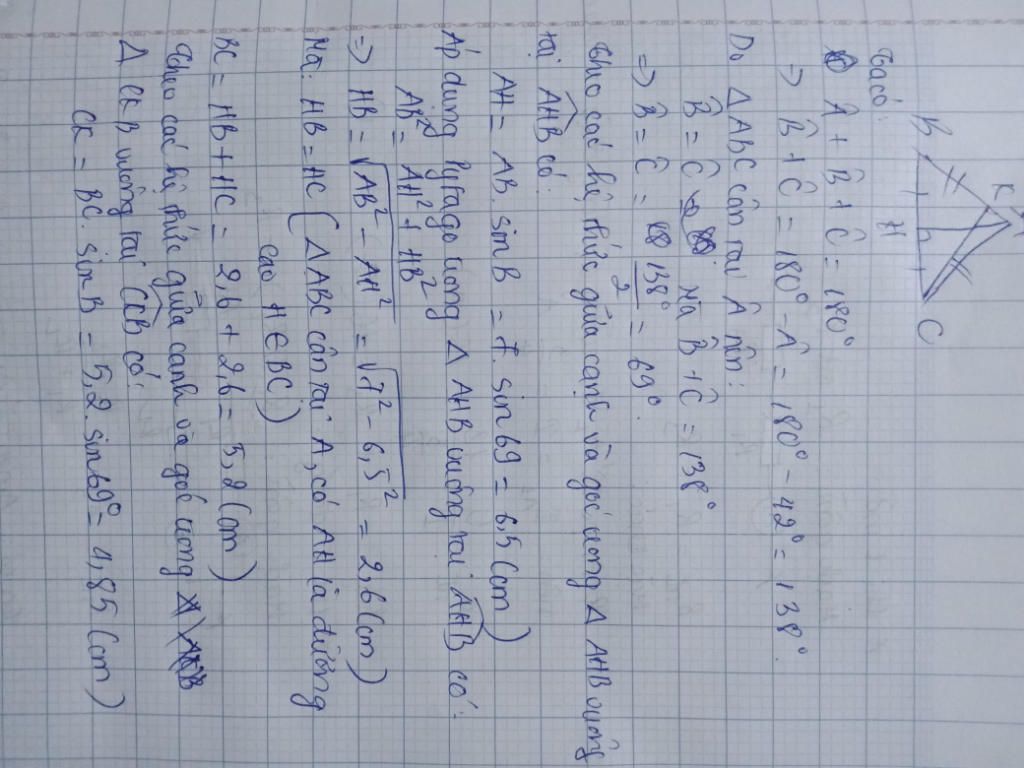 A
K
B
H
C
Ta có:
Â + B̂ + Ĉ = 180°
=> B̂ + Ĉ = 180° - Â = 180° - 42° = 138°
Do Δ ABC cân tại Â nên:
B̂ = Ĉ Mà B̂ + Ĉ = 138°
=> B̂ = Ĉ = 138°/2 = 69°
Theo các hệ thức giữa cạnh và góc trong Δ AHB vuông
tại AHB có:
AH = AB. sin B = 7. sin 69 = 6,5 (cm)
Áp dụng Pytago trong Δ AHB vuông tại AHB có:
AB² = AH² + HB²
=> HB = √AB² - AH² = √7² - 6,5² = 2,6 (cm)
Mà: HB = HC (Δ ABC cân tại A, có AH là đường
cao H ∈ BC)
BC = HB + HC = 2,6 + 2,6 = 5,2 (cm)
Theo các hệ thức giữa cạnh và góc trong
Δ CKB vuông tại CKB có:
CK = BC. sin B = 5,2 sin 69° = 4,85 (cm)